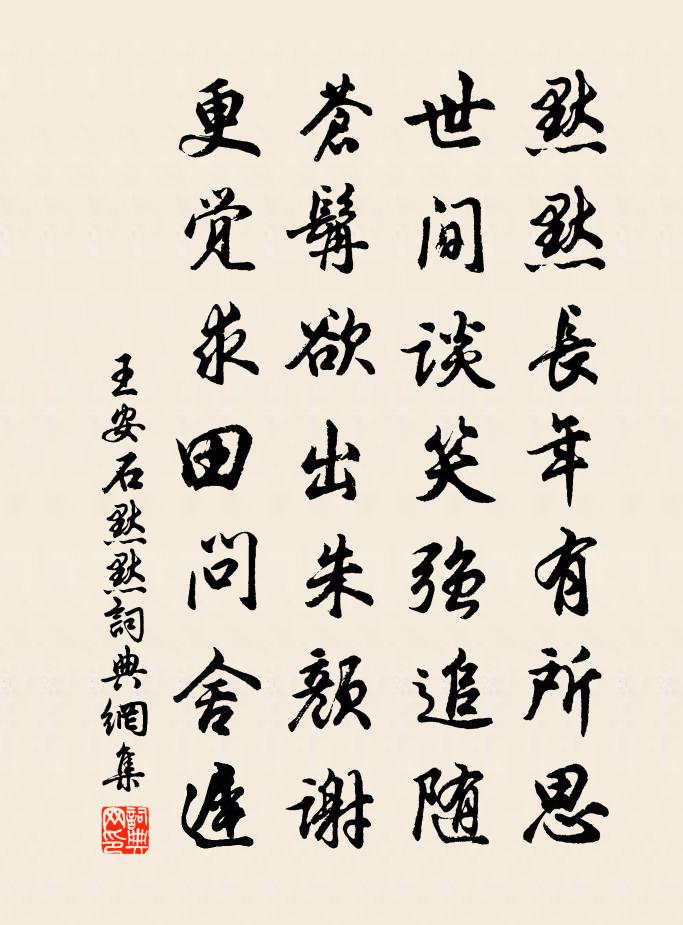 默默長年有所思
世间談笑強追随
蒼髯欲出朱顏謝
更觉求田问舍遲
王安石默默詞典網集
詞典网印